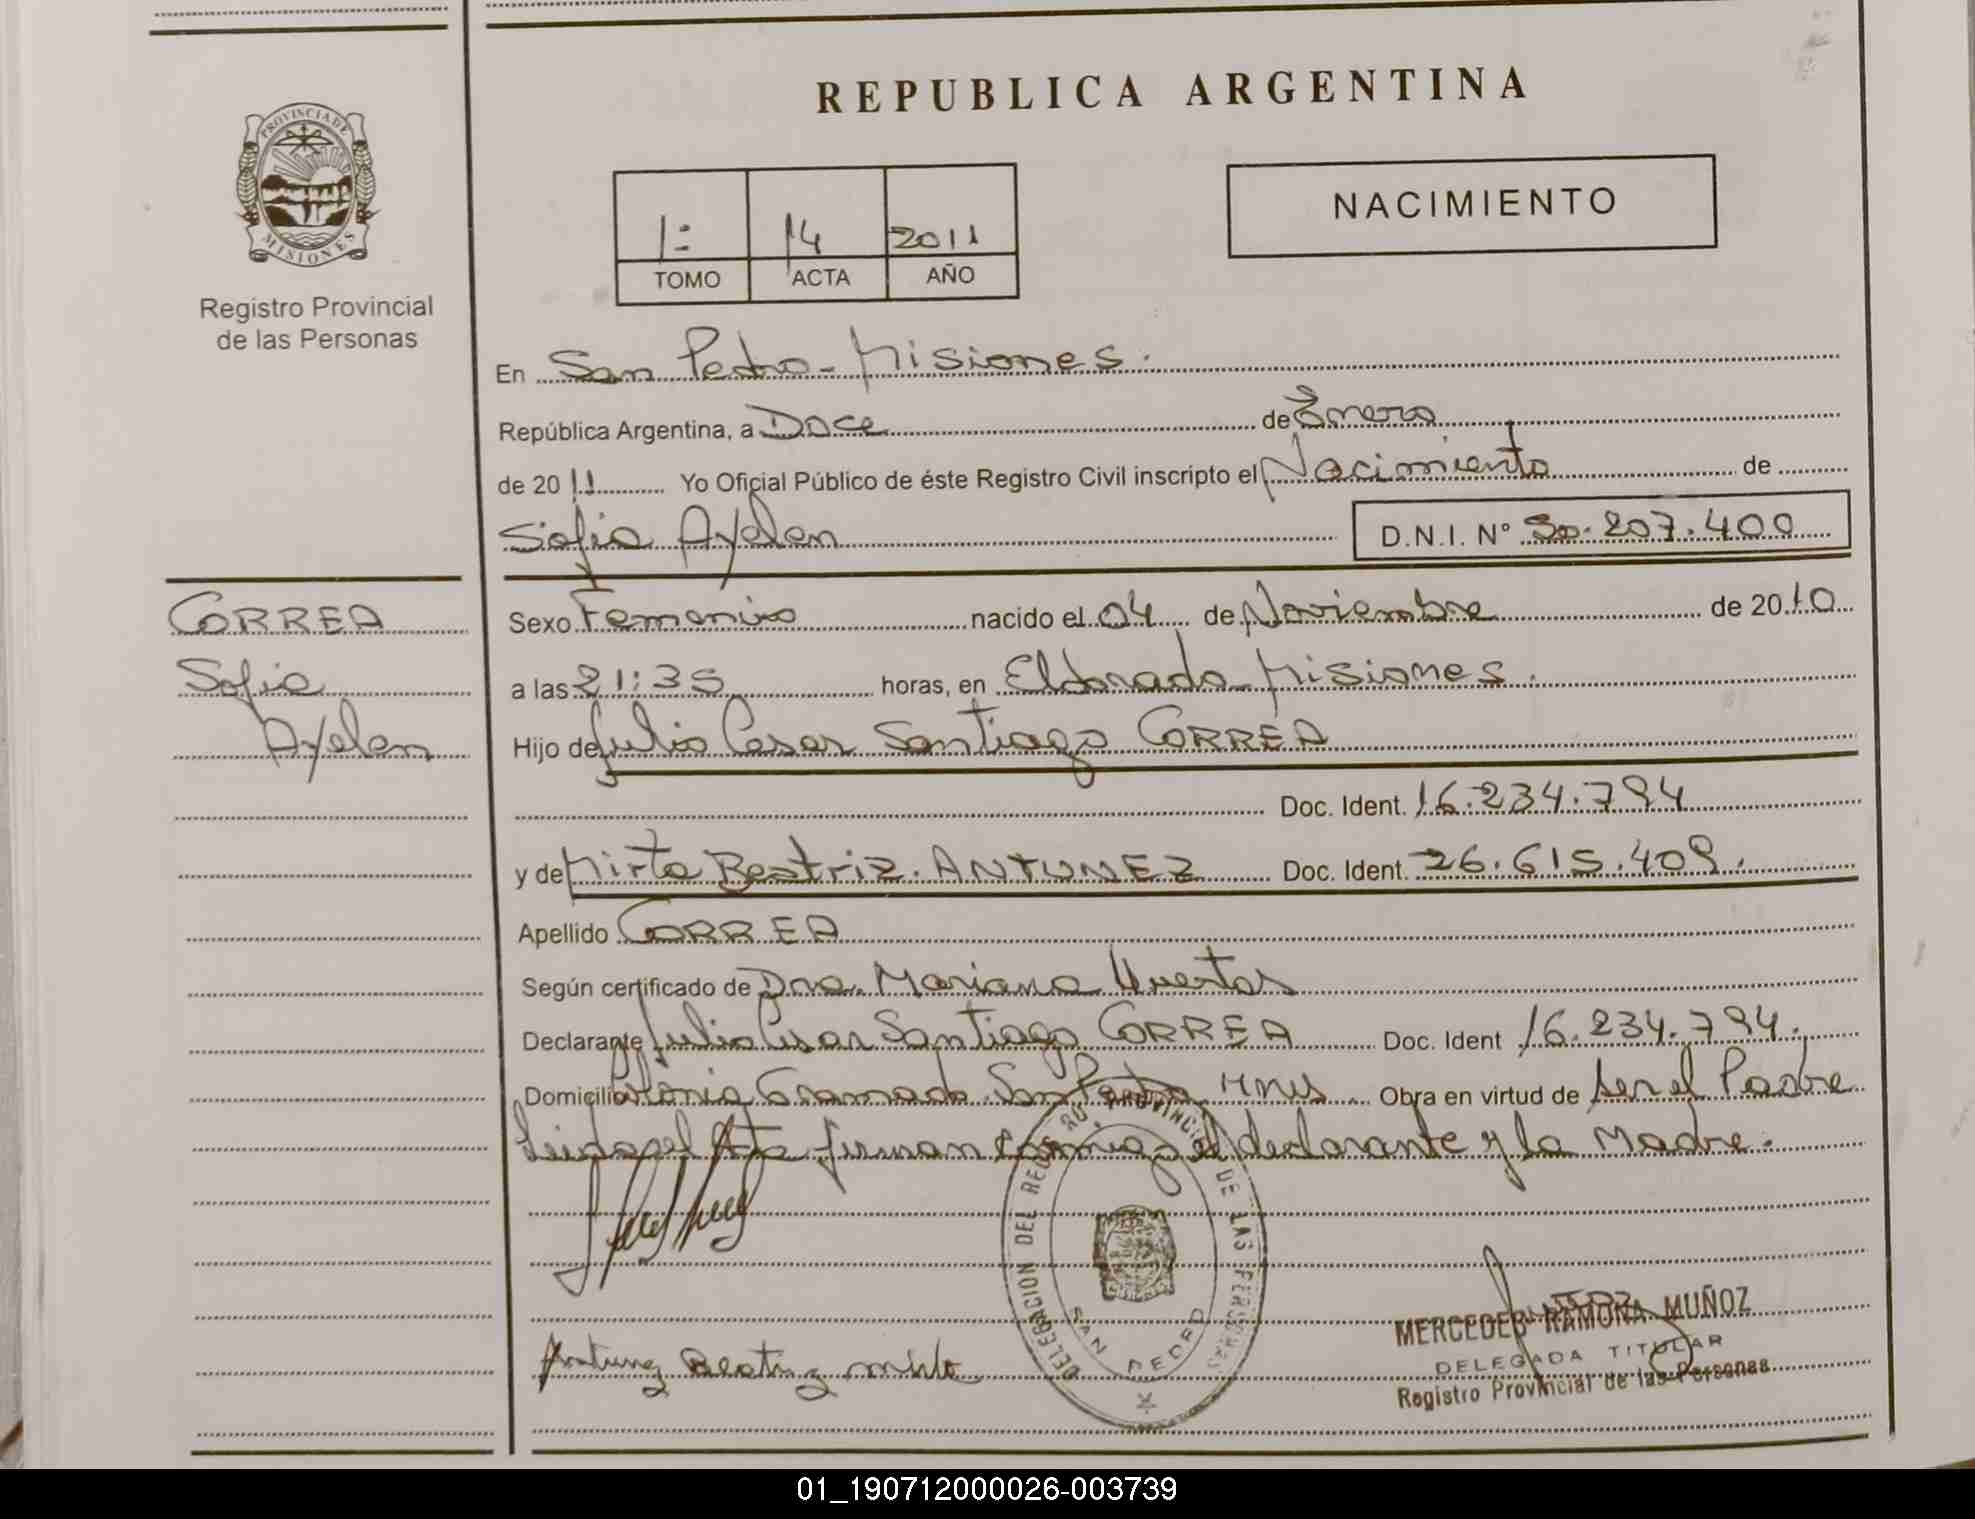 REPUBLICA ARGENTINA
PROVINCIA DE
MISIONES
Registro Provincial
de las Personas
1= 14 2011
TOMO ACTA AÑO
NACIMIENTO
En San Pedro - Misiones.
República Argentina, a Doce de Enero
de 2011 Yo Oficial Público de éste Registro Civil inscripto el Nacimiento de
Sofia Ayelen D.N.I. Nº 50.207.400
CORREA
Sofia
Ayelen
Sexo Femenino nacido el 04 de Noviembre de 2010
a las 21:35 horas, en Eldorado Misiones.
Hijo de Julio Cesar Santiago CORREA
Doc. Ident. 16.234.794
y de Mirta Beatriz. ANTUNEZ Doc. Ident. 26.615.409.
Apellido CORREA
Según certificado de Dra. Mariana Huertas
Declarante Julio Cesar Santiago CORREA Doc. Ident 16.234.794.
Domicilio Colonia Gramado San Pedro Mnes Obra en virtud de ser el Padre
Leida el Acta firman conmigo el declarante y la Madre.
DELEGACION DEL REG. PROVINCIAL DE LAS PERSONAS
SAN PEDRO
Antunez Beatriz mirta
MERCEDES RAMONA MUÑOZ
DELEGADA TITULAR
Registro Provincial de las Personas
01_190712000026-003739